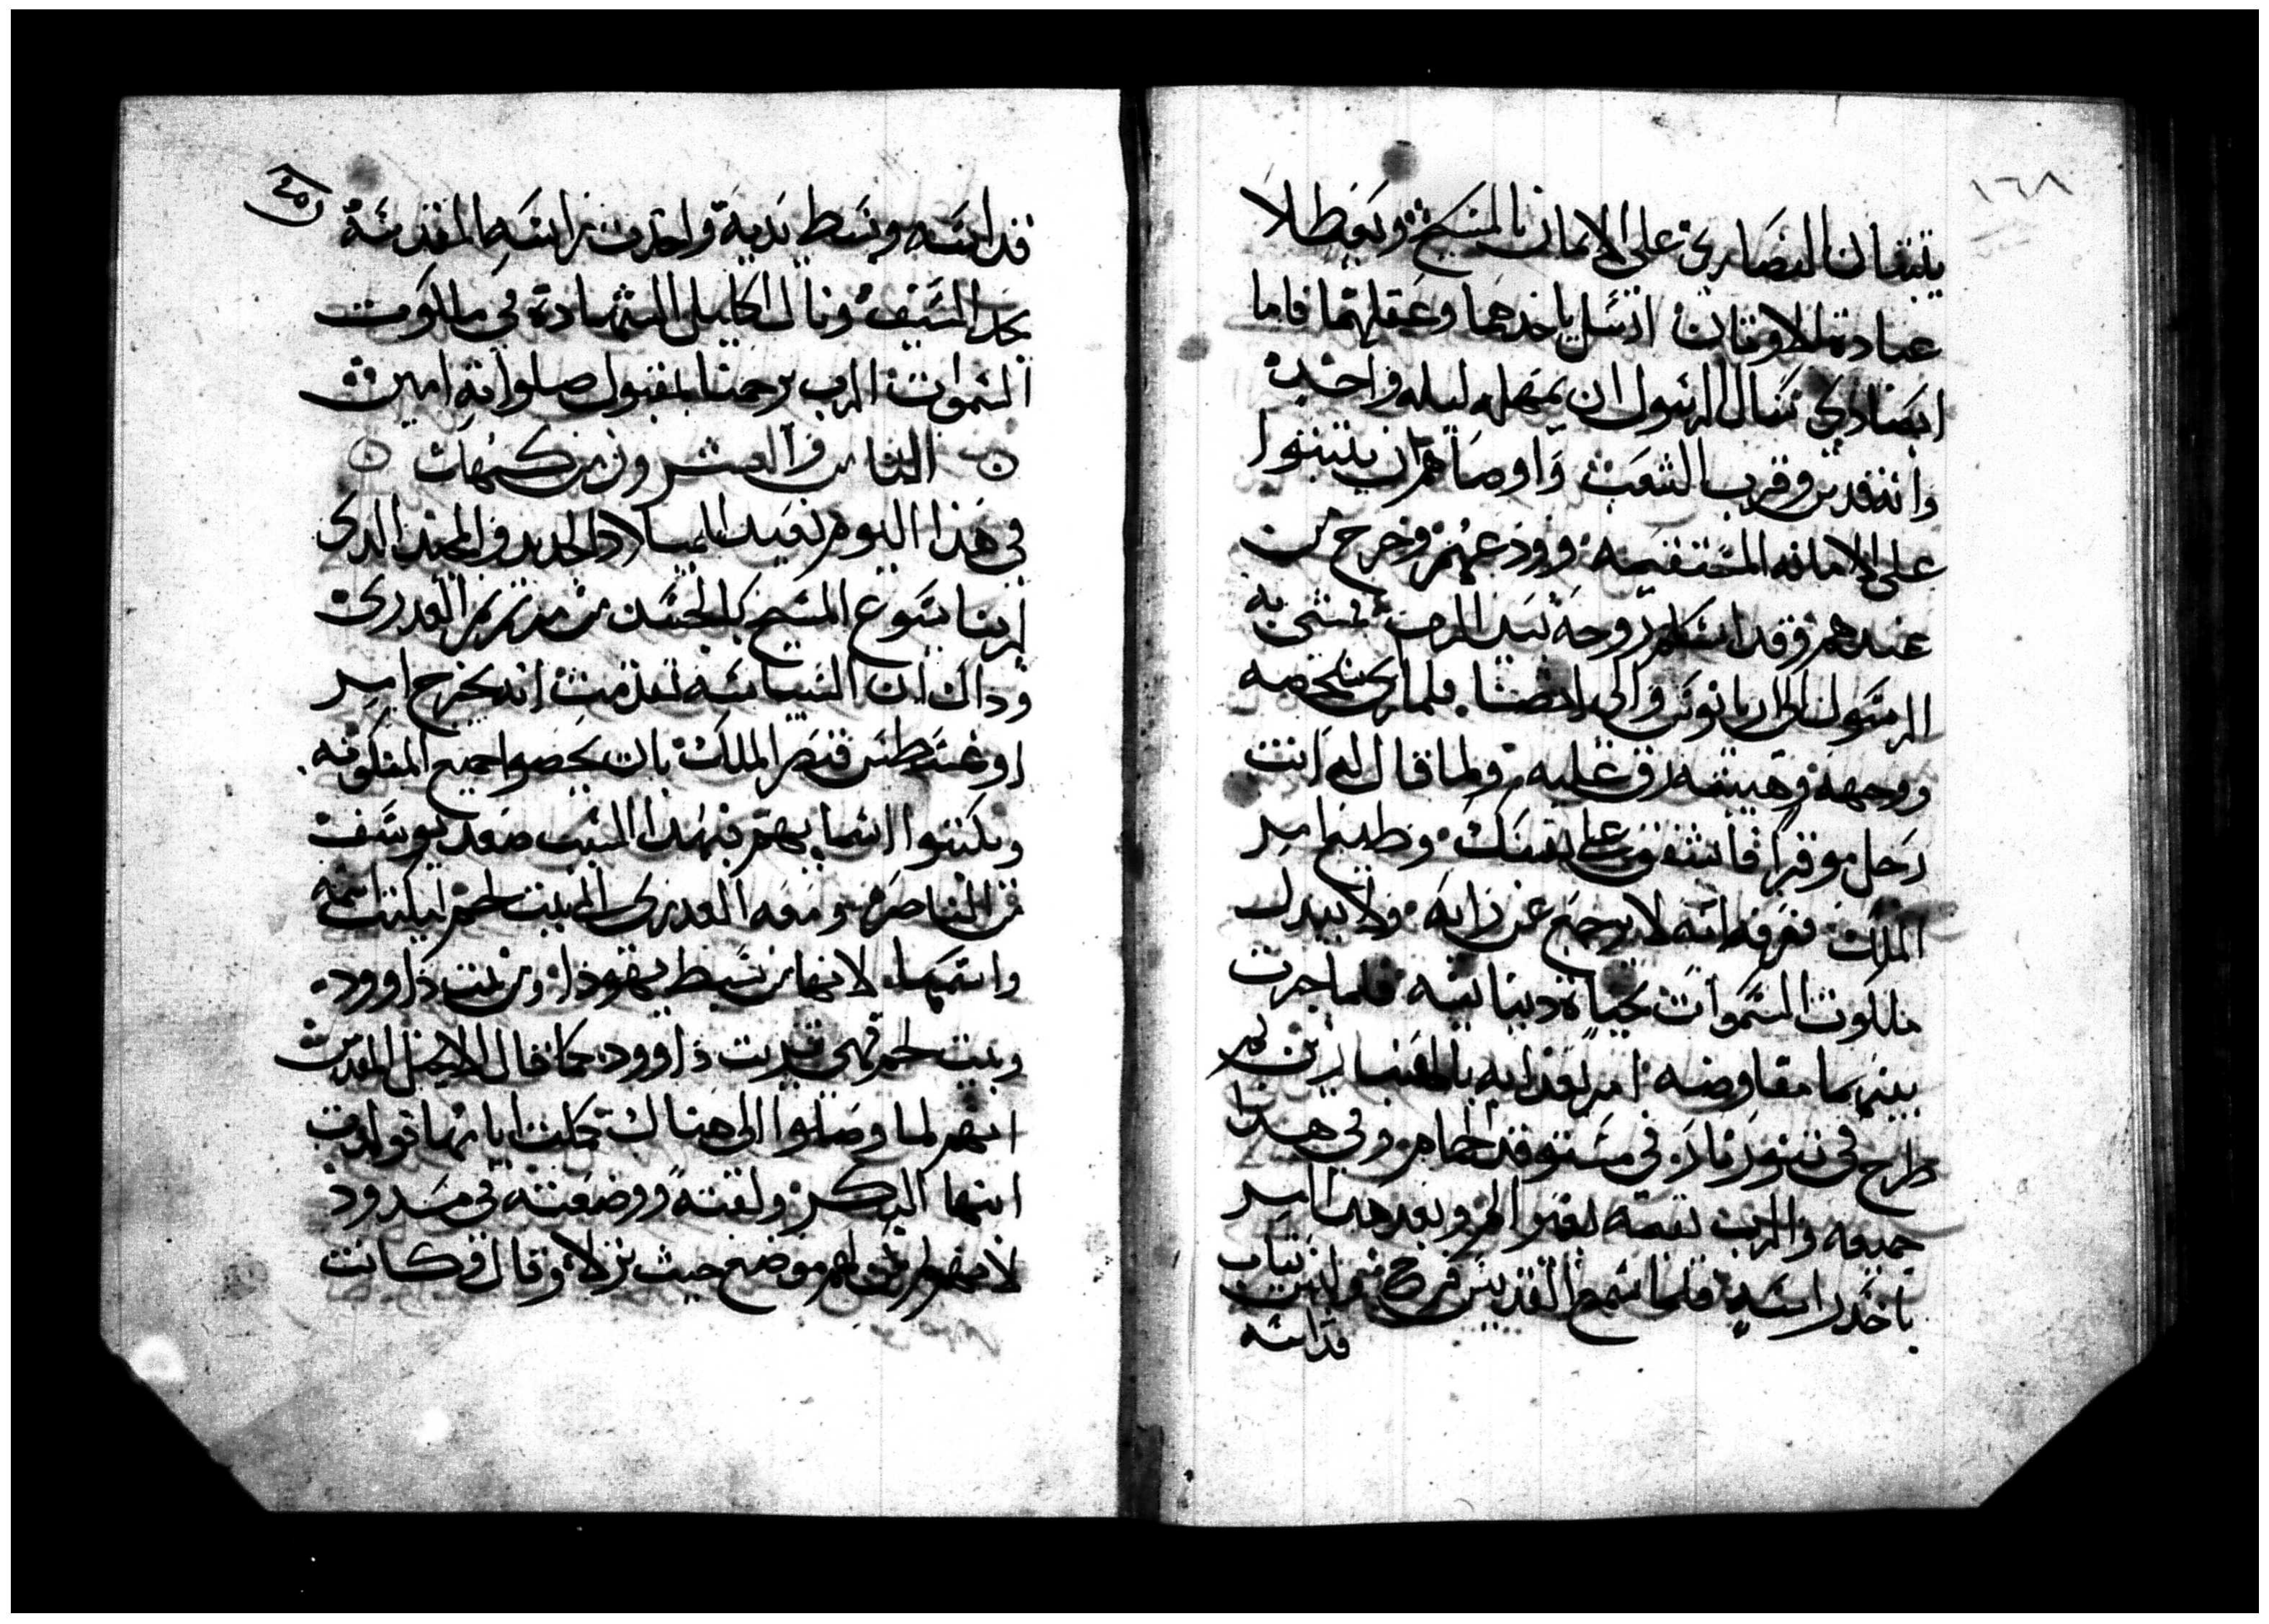 ١٦٨
يثبتان النصارى على الايمان بالمسيح ويبطلا
عبادة الاوثان ارسل ياخدهما وعقلهما فاما
ابصادى سال الرسول ان يمهله ليله واحده
وانه قدس وقرب الشعب واوصاهم ان يثبتوا
على الامانه المستقيمه وودعهم وخرج من
عندهم وقد اسلم روحه بيد الرب فمضى به
الرسول الى اريانوس والى انصنا فلما راى
ووجهه وهيبته رق عليه ولما قال له انت
رجل موقر فاشفق على نفسك وطيع امر
الملك فعرفه انه لا يرجع عن رايه ولا يبدل
ملكوت السموات بحياة دنيانيه فلما جرت
بينهما مفاوضه امر بعدابه بالهنبازين ثم
طرح فى تنور نار فى مستوقد الحمام وفى هدا
جميعه والرب بقيمه بغير الم وبعد هدا امر
ياخد راسه فلما سمع القديس فرح ثياب
قداسه
قداسه وبسط يديه واخدت راسه المقدسه
بحد السيف ونال اكليل الشهادة فى ملكوت
السموات الرب يرحمنا بمقبول صلواته امين
الثامن والعشرون من كيهك
فى هدا اليوم نعيد للميلاد الجديد والمجيد الدى
لربنا يسوع المسيح بالجسد من مرتمريم العدرى
وداك ان السياسه تقدمت انه يخرج امر
اوغسطس قيصر الملك بان يحصوا جميع المسكونه
ويكتبوا اسمايهم فبهدا السبب صعد يوسف
من الناصره ومعه العدرى الى بيت لحم ليكتب اسمه
واسمها لانها من سبط يهودا ومن بيت داوود
وبيت لحم فهى قرية داوود كما قال الانجيل المقدس
انهم لما وصلوا الى هناك كملت ايامها فولدت
ابنها البكر ولفته ووضعته فى مدود
لانهما لم يكن لهم موضع حيث نزلا وقال وكانت